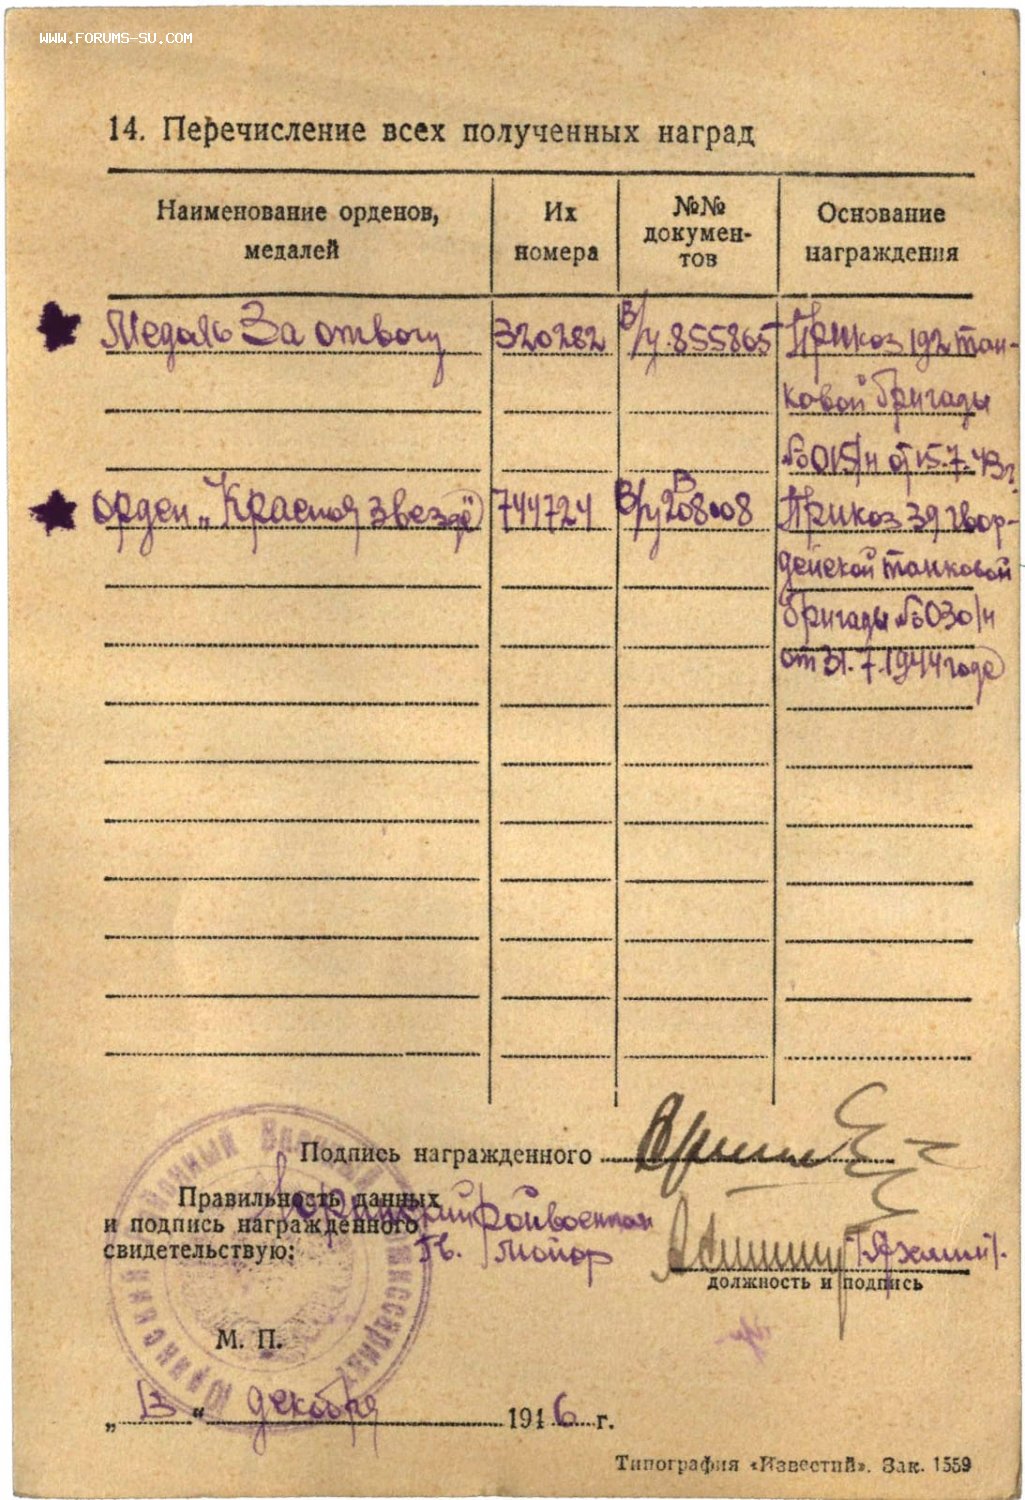 WWW.FORUMS-SU.COM
14. Перечисление всех полученных наград
Наименование орденов, медалей
Их номера
№№ докумен-тов
Основание награждения
Медаль За отвагу 320282 В/у. 855865 Приказ 192 тан-
ковой бригады
№ 015/н от 15.7.43г.
орден „Красная звезда" 744724 В/у В 208008 Приказ 39 гвар-
дейской танковой
бригады № 030/н
от 31.7.1944 года
Подпись награжденного
Правильность данных
и подпись награжденного
свидетельствую:
Юринский Райвоенком
Гв. Майор
должность и подпись
М. П.
„13" декабря 1946 г.
Типография «Известий». Зак. 1559